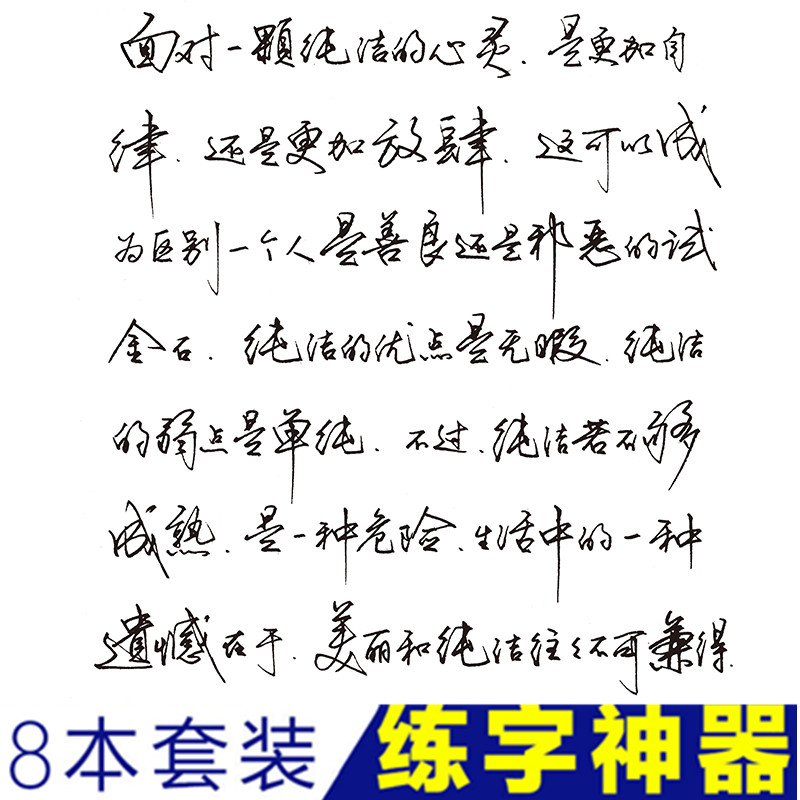 面对一颗纯洁的心灵.是更加自
律.还是更加放肆.这可以成
为区别一个人是善良还是邪恶的试
金石.纯洁的优点是无暇.纯洁
的弱点是单纯.不过.纯洁若不够
成熟.是一种危险.生活中的一种
遗憾在于.美丽和纯洁往往不可兼得.
8本套装 练字神器